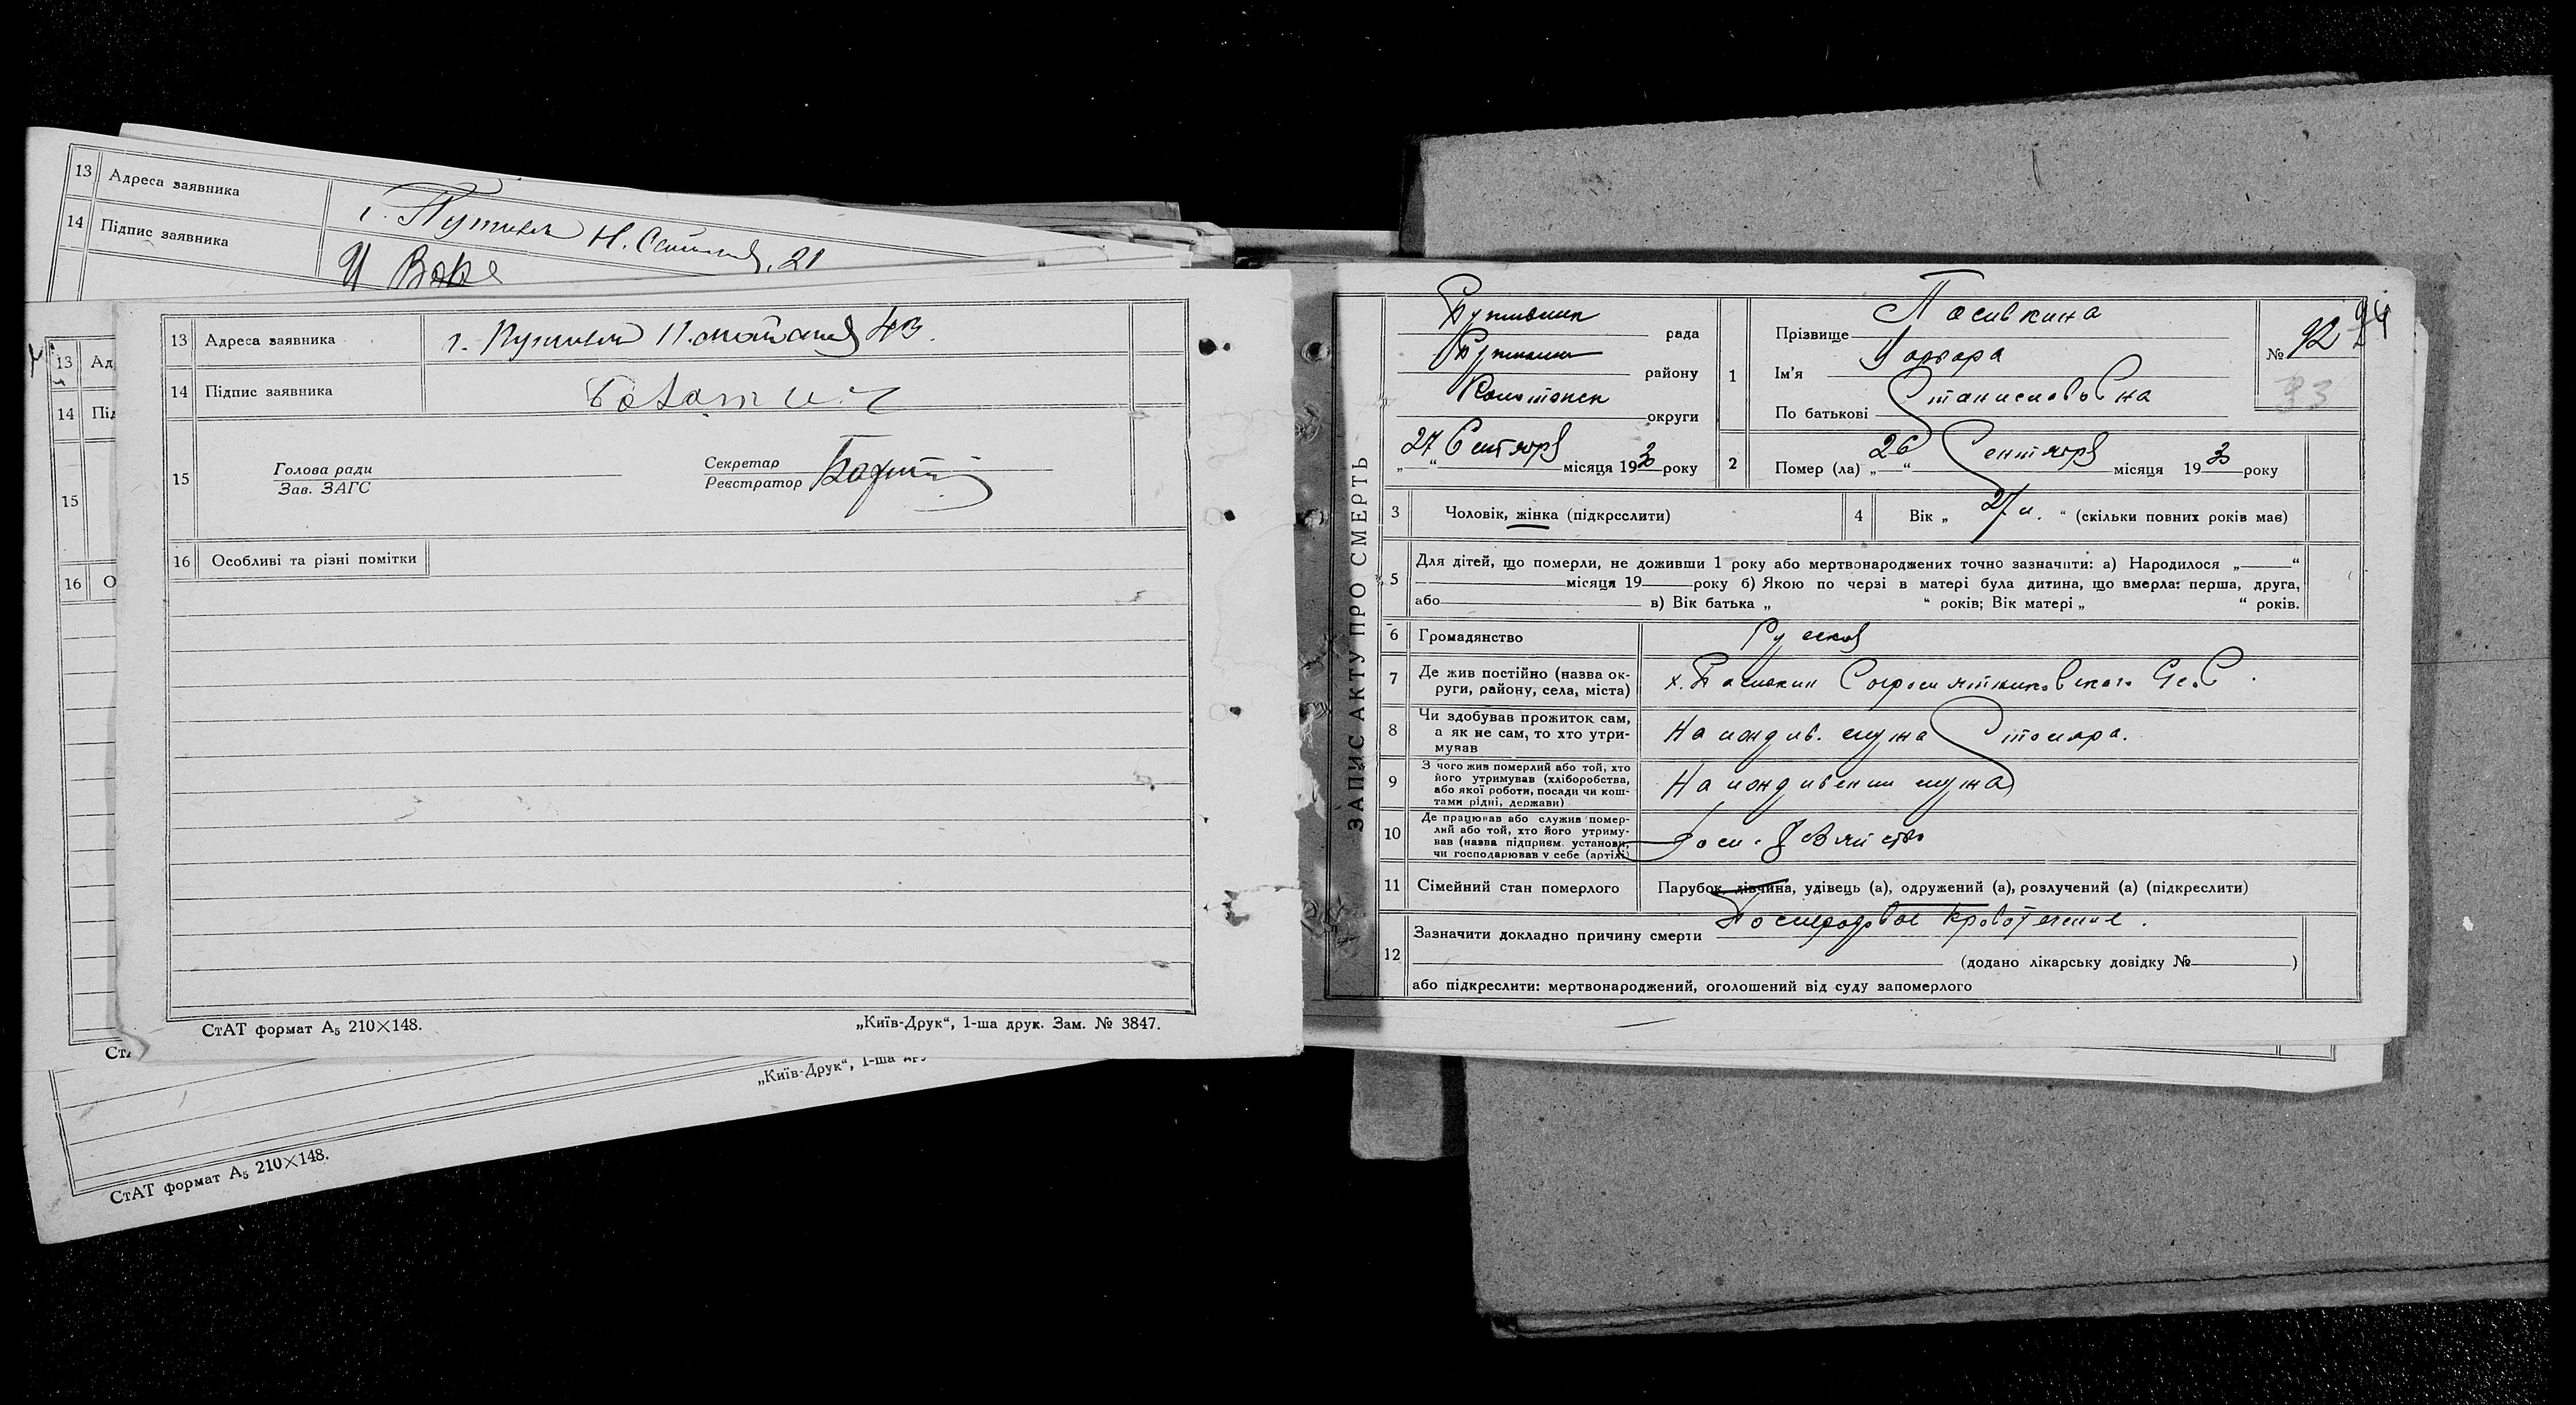 13 Адреса заявника г. Путивль Н. , 21
14 Підпис заявника
13 Ад
14 Під
15
16 О
13 Адреса заявника г. Путивль 43.
14 Підпис заявника
15 Голова ради Секретар
Зав. ЗАГС Реєстратор
16 Особливі та різні помітки
СтАТ формат А5 210×148. „Київ-Друк“, 1-ша друк. Зам. № 3847.
Ст
„Київ-Друк“, 1-ша др
СтАТ формат А5 210×148.
ЗАПИС АКТУ ПРО СМЕРТЬ
рада
району
Конотопск округи
„27“ Сентября місяця 1930 року
1 Прізвище
Ім'я
По батькові Станиславовна
№ 92 94
93
2 Помер (ла) „26“ Сентября місяця 1930 року
3 Чоловік, жінка (підкреслити)
4 Вік „ “ (скільки повних років має)
5 Для дітей, що померли, не доживши 1 року або мертвонароджених точно зазначити: а) Народилося „ “
місяця 19 року б) Якою по черзі в матері була дитина, що вмерла: перша, друга,
або в) Вік батька „ “ років; Вік матері „ “ років.
6 Громадянство Русская
7 Де жив постійно (назва ок-
руги, району, села, міста) х.
8 Чи здобував прожиток сам,
а як не сам, то хто утри-
мував На иждив. мужа Столяра.
9 З чого жив померлий або той, хто
його утримував (хліборобства,
або якої роботи, посади чи кош-
тами рідні, держави) На иждивении мужа
10 Де працював або служив помер-
лий або той, хто його утриму-
вав (назва підприєм. установи,
чи господарював у себе (артілі)
11 Сімейний стан померлого Парубок, дівчина, удівець (а), одружений (а), розлучений (а) (підкреслити)
12 Зазначити докладно причину смерти Послеродовое кровотечение.
(додано лікарську довідку № )
або підкреслити: мертвонароджений, оголошений від суду запомерлого